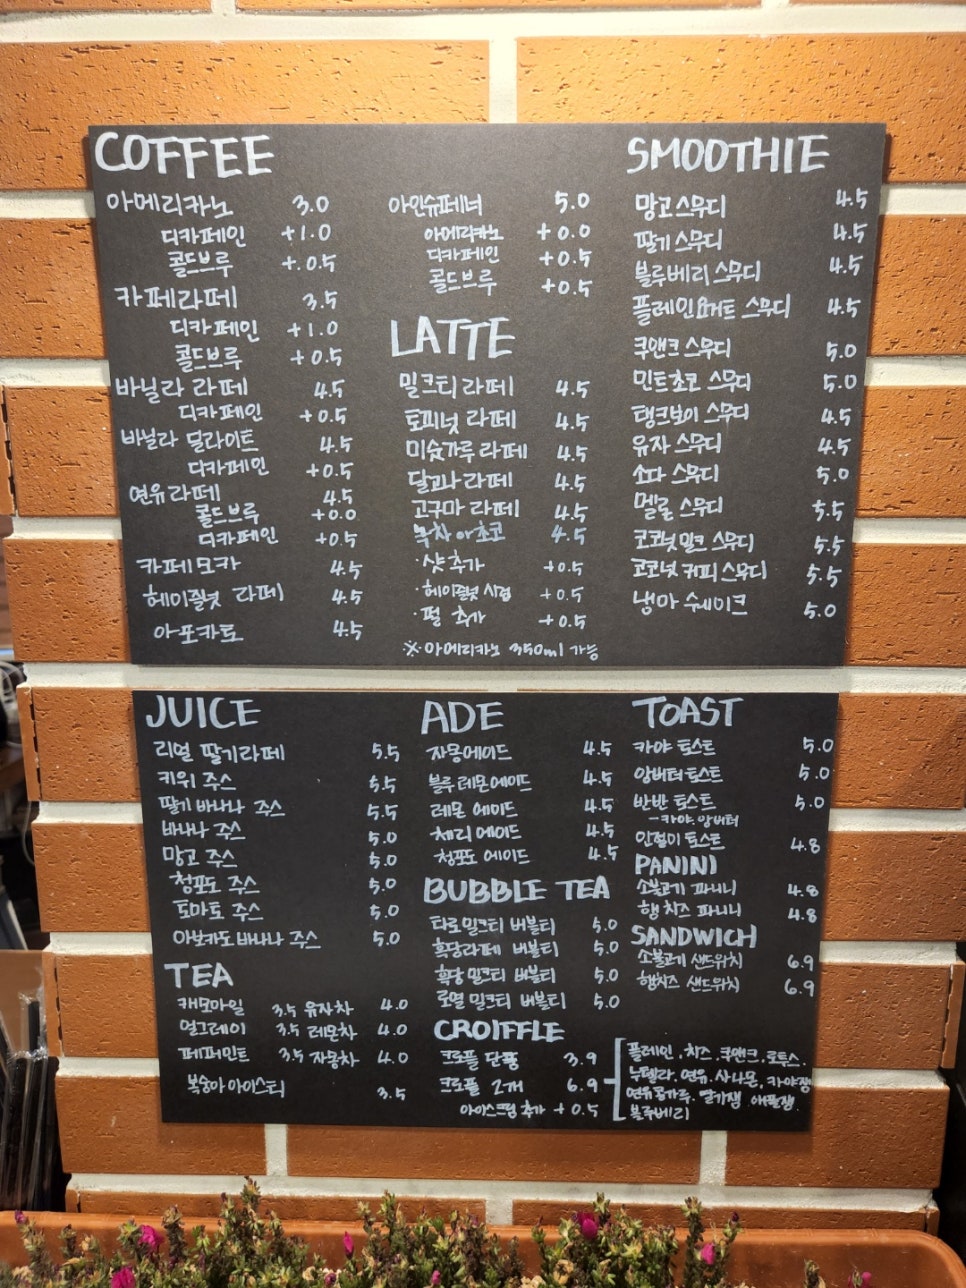 COFFEE
아메리카노 3.0
디카페인 +1.0
콜드브루 +.0.5
카페라떼 3.5
디카페인 +1.0
콜드브루 +0.5
바닐라 라떼 4.5
디카페인 +0.5
바닐라 딜라이트 4.5
디카페인 +0.5
연유라떼 4.5
콜드브루 +0.0
디카페인 +0.5
카페모카 4.5
헤이즐넛 라떼 4.5
아포카토 4.5
아인슈페너 5.0
아메리카노 +0.0
디카페인 +0.5
콜드브루 +0.5
LATTE
밀크티라떼 4.5
토피넛 라떼 4.5
미숫가루 라떼 4.5
달고나 라떼 4.5
고구마 라떼 4.5
녹차 or 초코 4.5
·샷추가 +0.5
·헤이즐넛 시럽 +0.5
·펄 추가 +0.5
※아메리카노 350ml 가능
SMOOTHIE
망고스무디 4.5
딸기 스무디 4.5
블루베리 스무디 4.5
플레인요거트 스무디 4.5
쿠앤크 스무디 5.0
민트초코 스무디 5.0
탱크보이 스무디 4.5
유자 스무디 4.5
소다 스무디 5.0
멜론 스무디 5.5
코코넛밀크 스무디 5.5
코코넛 커피스무디 5.5
냉마 쉐이크 5.0
JUICE
리얼 딸기라떼 5.5
키위 주스 5.5
딸기 바나나 주스 5.5
바나나 주스 5.0
망고 주스 5.0
청포도 주스 5.0
토마토 주스 5.0
아보카도 바나나 주스 5.0
TEA
캐모마일 3.5 유자차 4.0
얼그레이 3.5 레몬차 4.0
페퍼민트 3.5 자몽차 4.0
복숭아아이스티 3.5
ADE
자몽에이드 4.5
블루레몬에이드 4.5
레몬 에이드 4.5
체리 에이드 4.5
청포도 에이드 4.5
BUBBLE TEA
타로밀크티 버블티 5.0
흑당라떼 버블티 5.0
흑당 밀크티 버블티 5.0
로열 밀크티 버블티 5.0
CROIFFLE
크로플 단품 3.9
크로플 2개 6.9
아이스크림 추가 +0.5
플레인, 치즈, 쿠앤크, 로투스.
누텔라, 연유, 시나몬, 카야잼
연유콩가루, 딸기잼, 애플잼.
블루베리
TOAST
카야 토스트 5.0
앙버터토스트 5.0
반반 토스트 5.0
-카야.앙버터
인절미 토스트 4.8
PANINI
소불고기 파니니 4.8
햄치즈 파니니 4.8
SANDWICH
소불고기 샌드위치 6.9
햄치즈 샌드위치 6.9